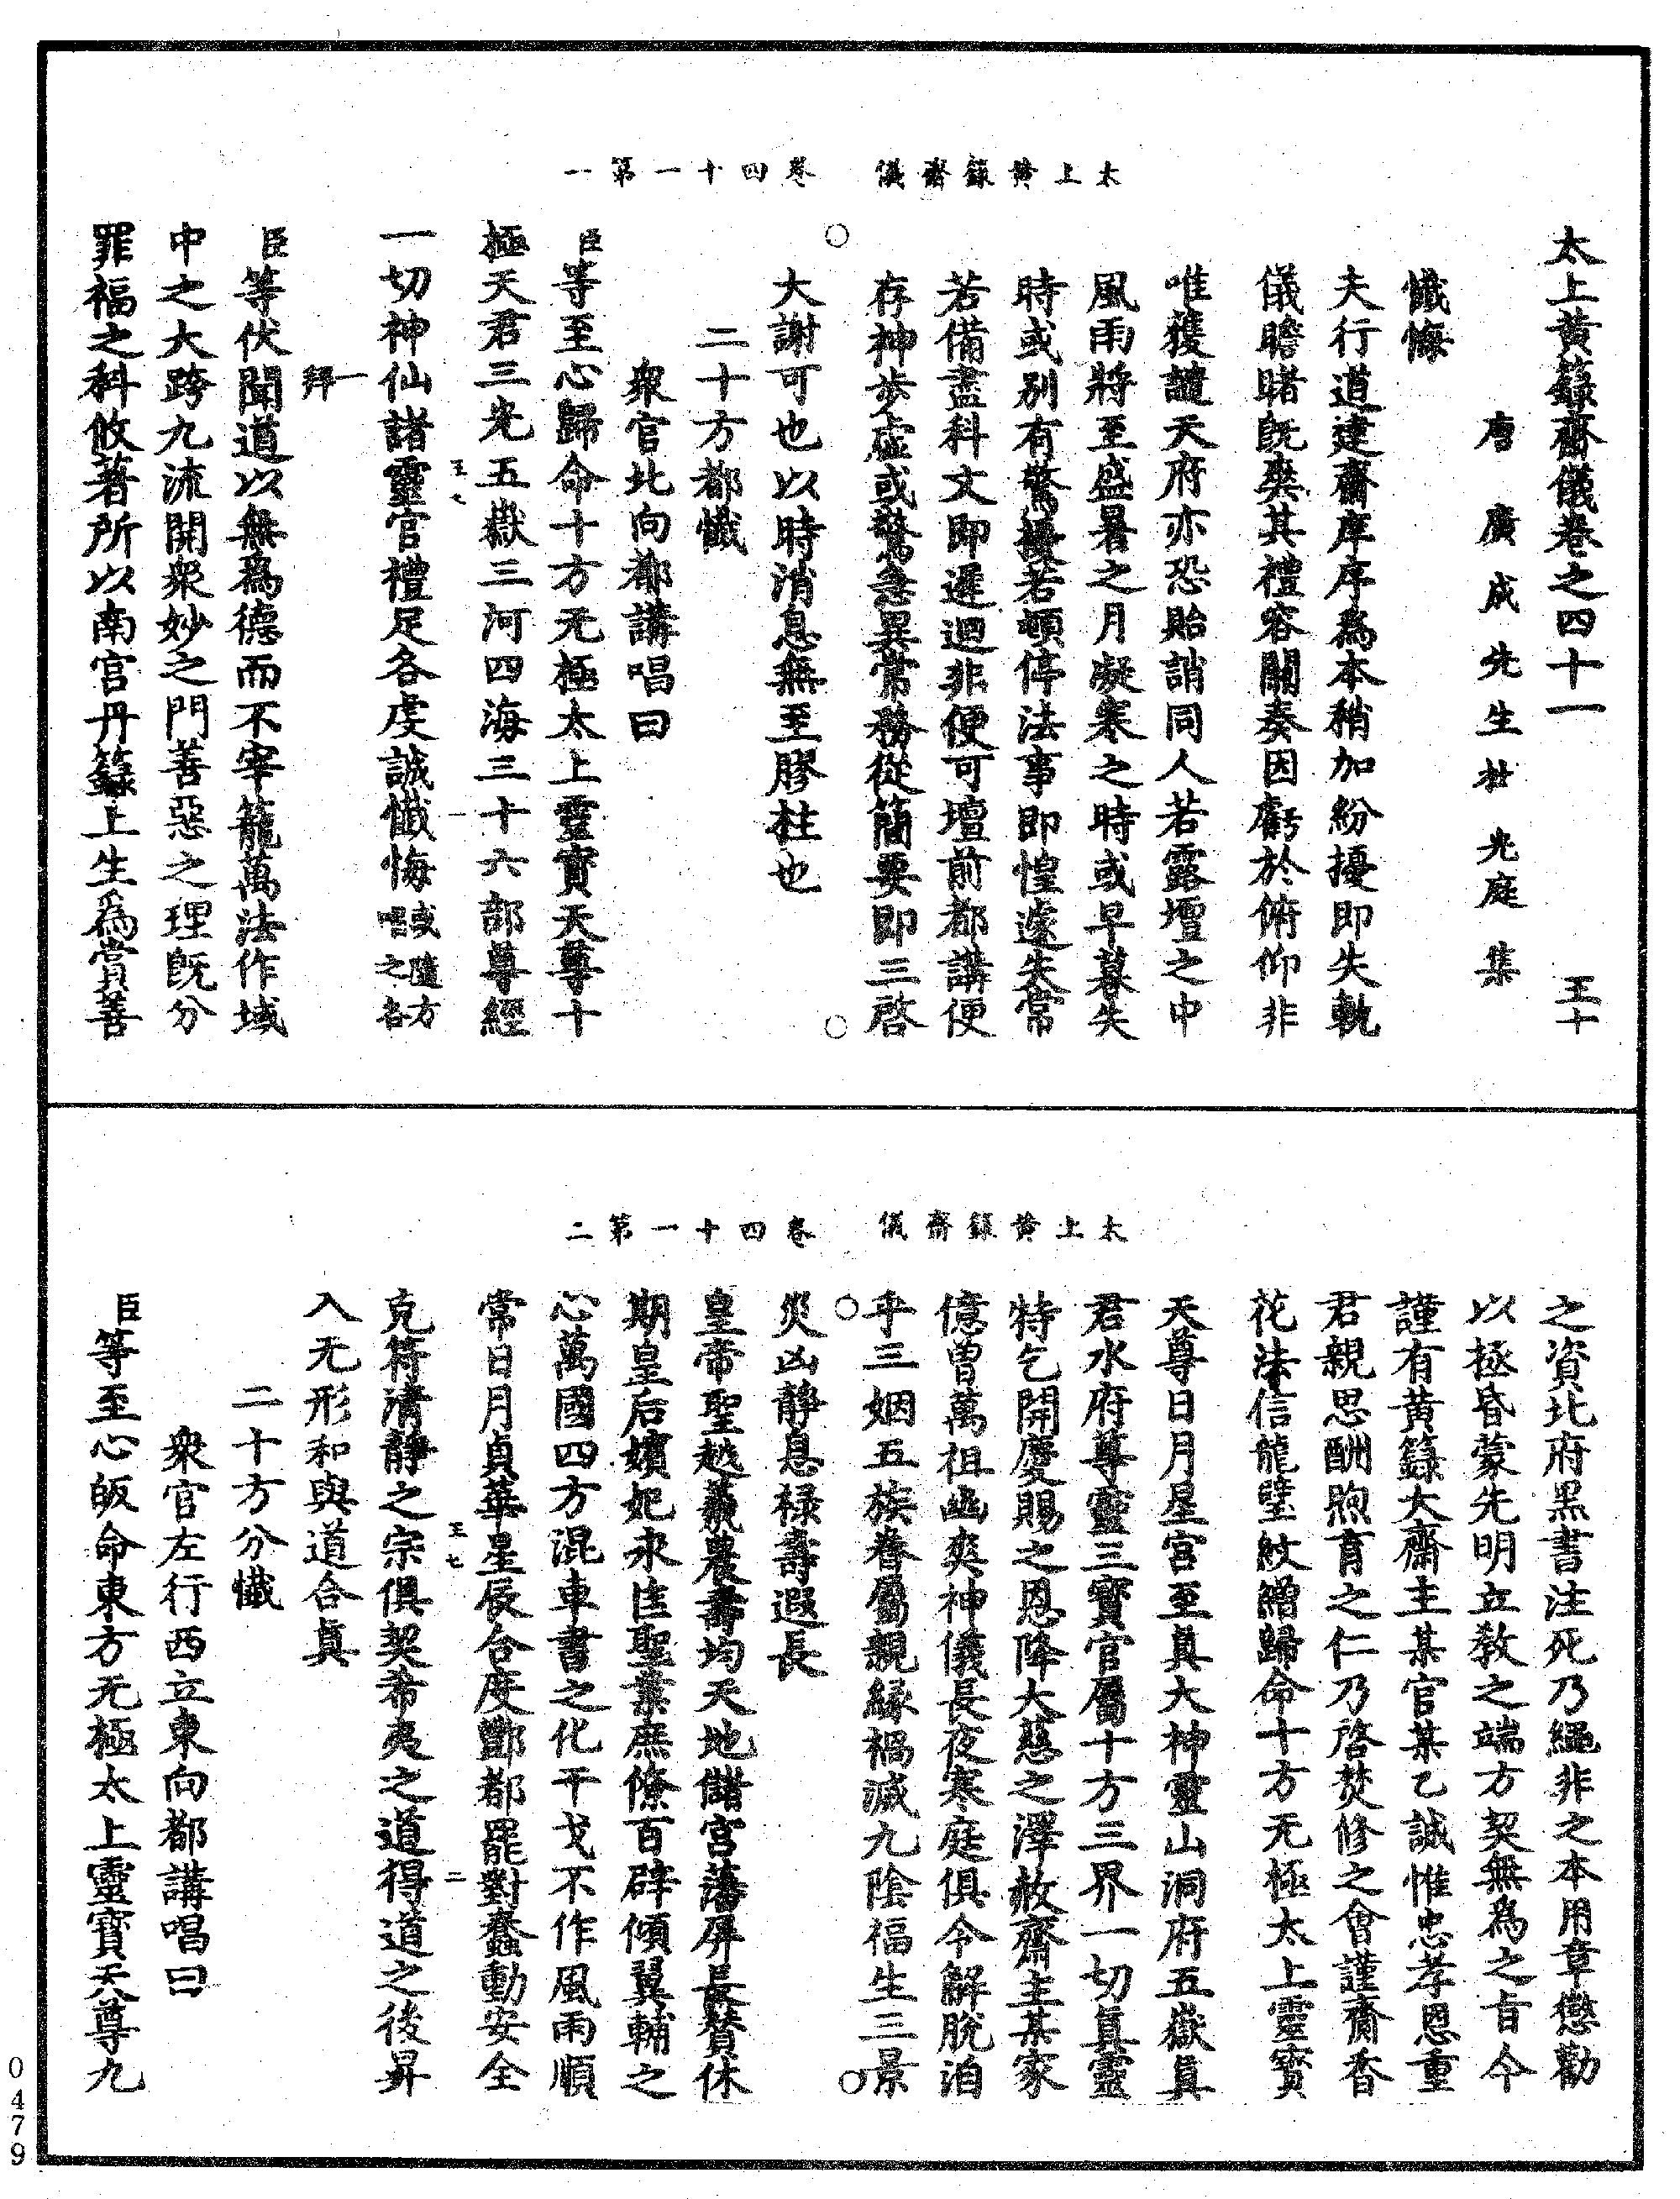 太上黃籙齋儀　卷四十一第一
太上黃籙齋儀卷之四十一　王十
唐廣成先生杜光庭集
懺悔
夫行道建齋庠序為本稍加紛擾即失軌
儀瞻睹旣奭其禮容關奏因虧於俯仰非
唯獲譴天府亦恐貽誚同人若露壇之中
風雨將至盛暑之月凝寒之時或早暮失
時或別有驚擾若頓停法事即惶遽失常
若備盡科文即遲迴非便可壇前都講便
存神步虛或驚急異常務從簡要即三啓
大謝可也以時消息無至膠柱也
二十方都懺
衆官北向都講唱曰
臣等至心歸命十方无極太上靈寶天尊十
極天君三光五嶽三河四海三十六部尊經
王七　一
一切神仙諸靈官禮足各虔誠懺悔或隨方唱之各
一拜
臣等伏聞道以無爲德而不宰籠萬法作域
中之大跨九流開衆妙之門善惡之理旣分
罪福之科攸著所以南宮丹籙上生爲賞善
太上黃籙齋儀　卷四十一第二
之資北府黑書注死乃繩非之本用章懲勸
以拯昏蒙先明立敎之端方契無爲之旨今
謹有黃籙大齋主某官某乙誠惟忠孝恩重
君親思酬煦育之仁乃啓焚修之會謹齋香
花法信龍璧紋繒歸命十方无極太上靈寶
天尊日月星宮至眞大神靈山洞府五嶽眞
君水府尊靈三寶官屬十方三界一切眞靈
特乞開慶賜之恩降大慈之澤赦齋主某家
億曾萬祖幽爽神儀長夜寒庭俱令解脫洎
乎三姻五族眷屬親緣禍滅九陰福生三景
災凶靜息祿壽遐長
皇帝聖越羲農壽均天地儲宮藩屏長贊休
期皇后嬪妃永匡聖葉庶僚百辟傾翼輔之
心萬國四方混車書之化干戈不作風雨順
常日月貞華星辰合度酆都罷對蠢動安全
王七　二
克符清靜之宗俱契希夷之道得道之後昇
入无形和與道合眞
二十方分懺
衆官左行西立東向都講唱曰
臣等至心皈命東方无極太上靈寶天尊九
0479